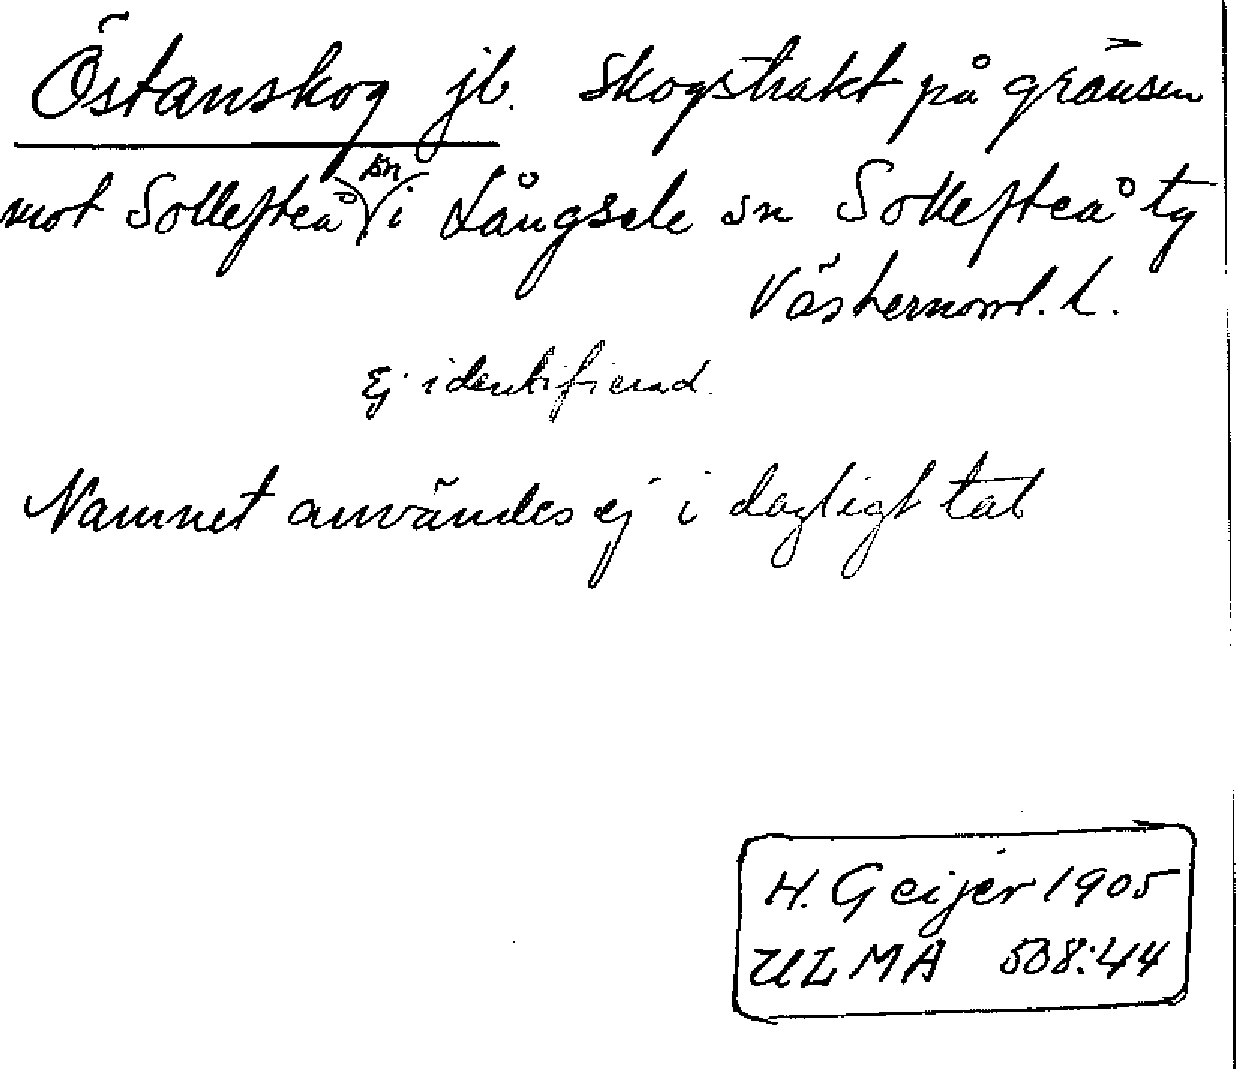 Östanskog jb. Skogstrakt på gränsen
mot Sollefteå sn i Långsele sn Sollefteå tg
Västernorrl. L.
Ej identifierad.
Namnet användes ej i dagligt tal
H. Geijer 1905
ULMA 508:44